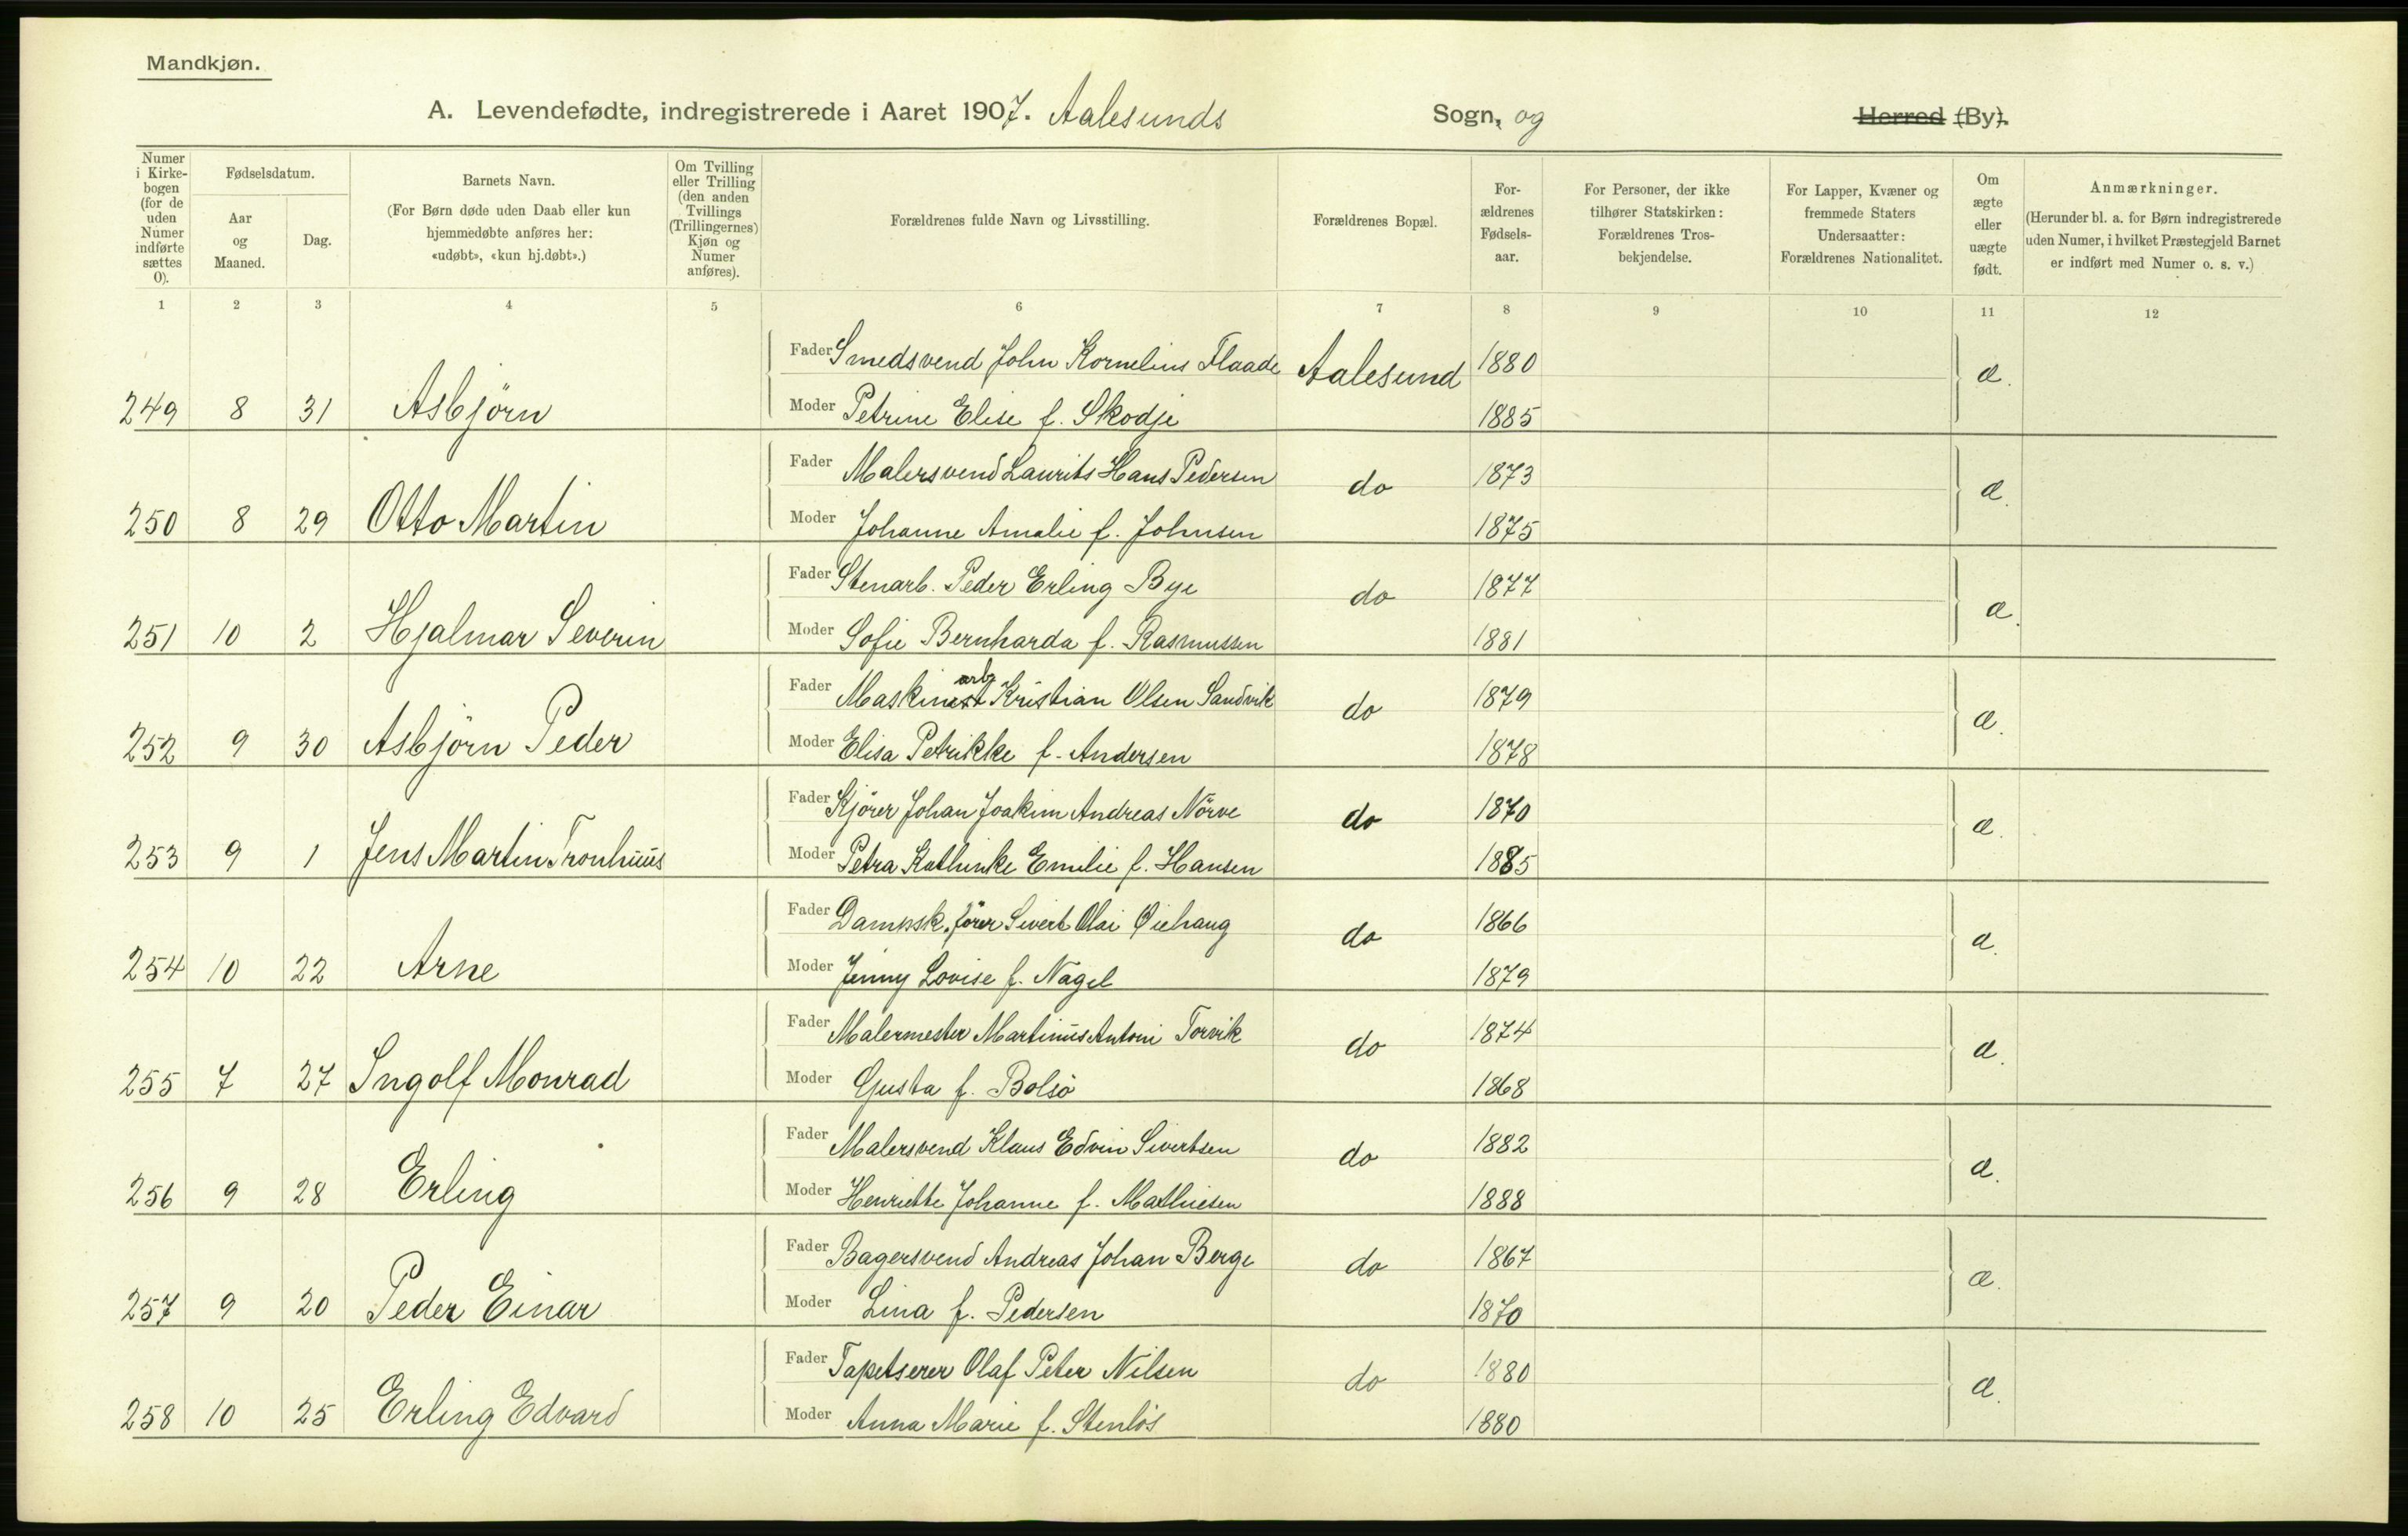 Mandkjøn.
A. Levendefødte, indregistrerede i Aaret 1907. Aalesunds Sogn, og Herred (By).
Numer i Kirkebogen (for de uden Numer indførte sættes 0).
Fødselsdatum.
Aar og Maaned.
Dag.
Barnets Navn.
(For Børn døde uden Daab eller kun hjemmedøbte anføres her: «udøbt», «kun hj.døbt».)
Om Tvilling eller Trilling (den anden Tvillings (Trillingernes) Kjøn og Numer anføres).
Forældrenes fulde Navn og Livsstilling.
Forældrenes Bopæl.
Forældrenes Fødselsaar.
For Personer, der ikke tilhører Statskirken: Forældrenes Trosbekjendelse.
For Lapper, Kvæner og fremmede Staters Undersaatter: Forældrenes Nationalitet.
Om ægte eller uægte født.
Anmærkninger.
(Herunder bl. a. for Børn indregistrerede uden Numer, i hvilket Præstegjeld Barnet er indført med Numer o. s. v.)
1 2 3 4 5 6 7 8 9 10 11 12
Fader Smedsvend John Kornelius Flaade Aalesund 1880 æ.
249 8 31 Asbjörn Moder Petrine Elise f. Skodje 1885
Fader Malersvend Laurits Hans Pedersen do 1873 æ.
250 8 29 Otto Martin Moder Johanne Amalie f. Johnsen 1875
Fader Stenarb. Peder Erling Bye do 1877 æ.
251 10 2 Hjalmar Severin Moder Sofie Bernharda f. Rasmussen 1881
Fader Maskinarb Kristian Olsen Sandvik do 1879 æ.
252 9 30 Asbjörn Peder Moder Elisa Petrikke f. Andersen 1878
Fader Kjörer Johan Joakim Andreas Nörve do 1870 æ.
253 9 1 Jens Martin Tronhuus Moder Petra Kathinke Emilie f. Hansen 1885
Fader Dampsk.förer Sivert Olai Øiehaug do 1866 æ.
254 10 22 Arne Moder Jenny Lovise f. Nagel 1879
Fader Malermester Martinus Antoni Torvik do 1874 æ.
255 7 27 Ingolf Monrad Moder Gusta f. Bolsö 1868
Fader Malersvend Klaus Edvin Sivertsen do 1882 æ.
256 9 28 Erling Moder Henriette Johanne f. Mathiesen 1888
Fader Bagersvend Andreas Johan Berge do 1867 æ.
257 9 20 Peder Einar Moder Lina f. Pedersen 1870
Fader Tapetserer Olaf Peter Nilsen do 1880 æ.
258 10 25 Erling Edvard Moder Anna Marie f. Stenlös 1880